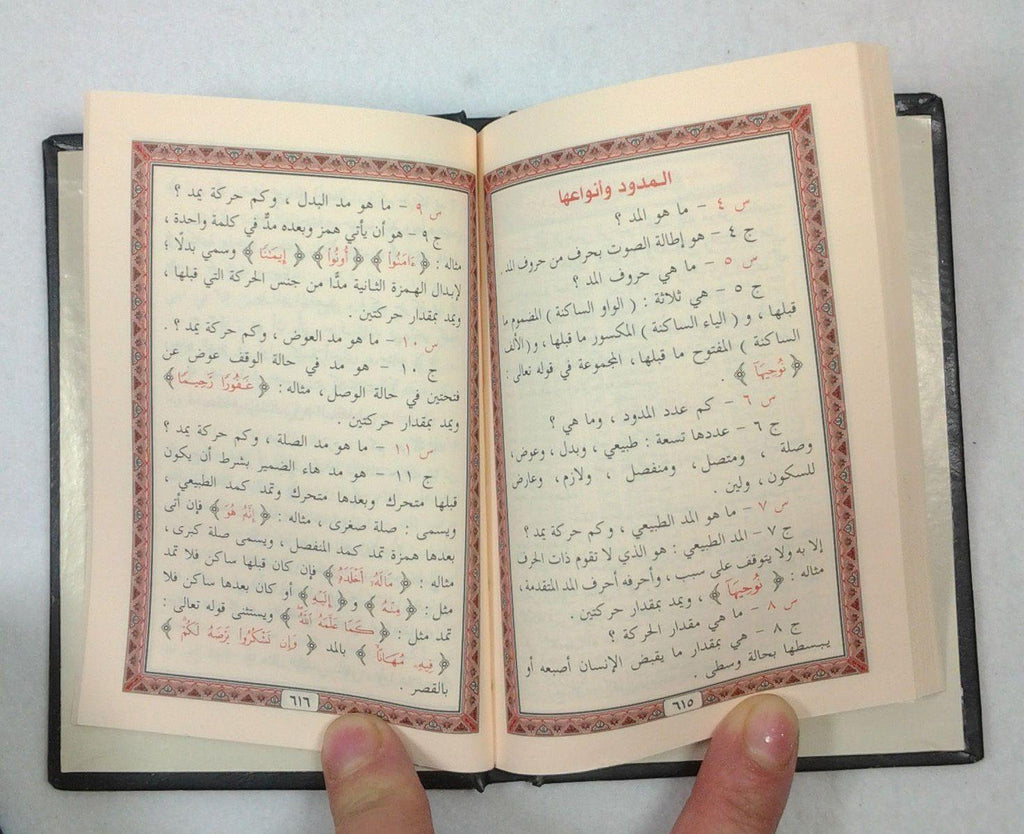 المدود وأنواعها
س ٤ – ما هو المد ؟
ج ٤ – هو إطالة الصوت بحرف من حروف المد .
س ٥ – ما هي حروف المد ؟
ج ٥ – هي ثلاثة : ( الواو الساكنة ) المضموم ما
قبلها ، و ( الياء الساكنة ) المكسور ما قبلها ، و ( الألف
الساكنة ) المفتوح ما قبلها ، المجموعة في قوله تعالى :
﴿ نُوحِيهَآ ﴾ .
س ٦ – كم عدد المدود ، وما هي ؟
ج ٦ – عددها تسعة : طبيعي ، وبدل ، وعوض ،
وصلة ، ومتصل ، ومنفصل ، ولازم ، وعارض
للسكون ، ولين .
س ٧ – ما هو المد الطبيعي ، وكم حركة يمد ؟
ج ٧ – المد الطبيعي : هو الذي لا تقوم ذات الحرف
إلا به ولا يتوقف على سبب ، وأحرفه أحرف المد المتقدمة ،
مثاله : ﴿ نُوحِيهَآ ﴾ ، ويمد بمقدار حركتين .
س ٨ – ما هي مقدار الحركة ؟
ج ٨ – هي بمقدار ما يقبض الإنسان أصبعه أو
يبسطها بحالة وسطى .
٦١٥
س ٩ – ما هو مد البدل ، وكم حركة يمد ؟
ج ٩ – هو أن يأتي همز وبعده مدٌّ في كلمة واحدة ،
مثاله : ﴿ ءَامَنُوا۟ ﴾ ﴿ أُوتُوا۟ ﴾ ﴿ إِيمَٰنًا ﴾ وسمي بدلًا ؛
لإبدال الهمزة الثانية مدًّا من جنس الحركة التي قبلها ،
ويمد بمقدار حركتين .
س ١٠ – ما هو مد العوض ، وكم حركة يمد ؟ .
ج ١٠ – هو مد في حالة الوقف عوض عن
فتحتين في حالة الوصل ، مثاله : ﴿ غَفُورًا رَّحِيمًا ﴾
ويمد بمقدار حركتين .
س ١١ – ما هو مد الصلة ، وكم حركة يمد ؟
ج ١١ – هو مد هاء الضمير بشرط أن يكون
قبلها متحرك وبعدها متحرك وتمد كمد الطبيعي ،
ويسمى : صلة صغرى ، مثاله : ﴿ إِنَّهُۥ هُوَ ﴾ فإن أتى
بعدها همزة تمد كمد المنفصل ، ويسمى صلة كبرى ،
مثاله : ﴿ مَالَهُۥٓ أَخْلَدَهُۥ ﴾ فإن كان قبلها ساكن فلا تمد
مثل : ﴿ مِنْهُ ﴾ و ﴿ إِلَيْهِ ﴾ أو كان بعدها ساكن فلا
تمد مثل : ﴿ كَمَا عَلَّمَهُ ٱللَّهُ ﴾ ويستثنى قوله تعالى :
﴿ فِيهِۦ مُهَانًا ﴾ بالمد ﴿ وَإِن تَشْكُرُوا۟ يَرْضَهُ لَكُمْ ﴾
بالقصر .
٦١٦